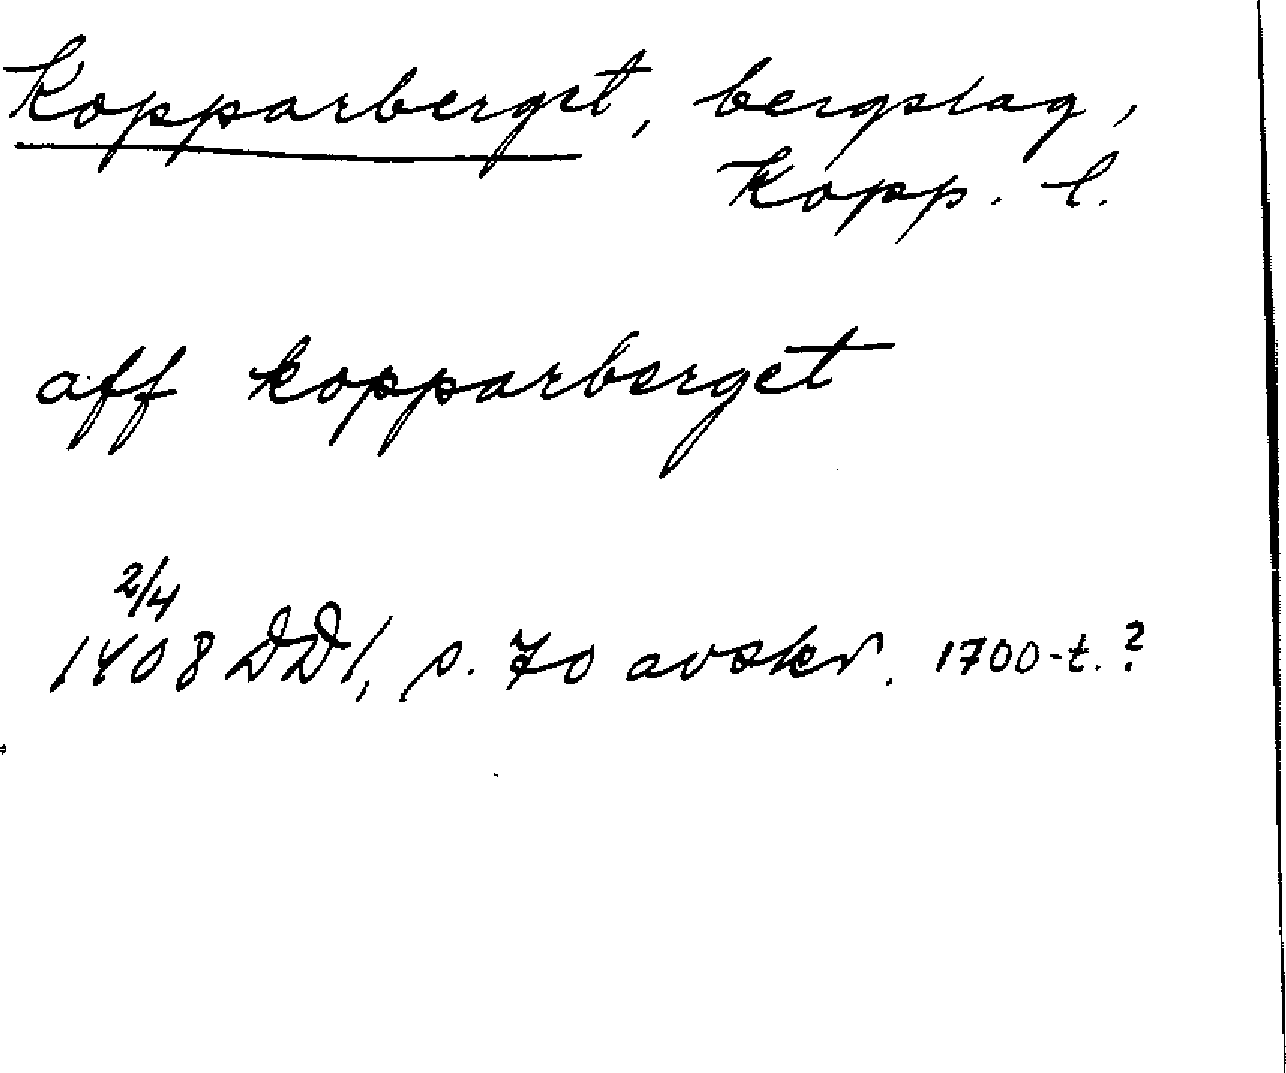 Kopparberget, bergslag,
Kopp. l.
aff kopparberget
2/4
1408 DD1, s. 70 avskr. 1700-t.?